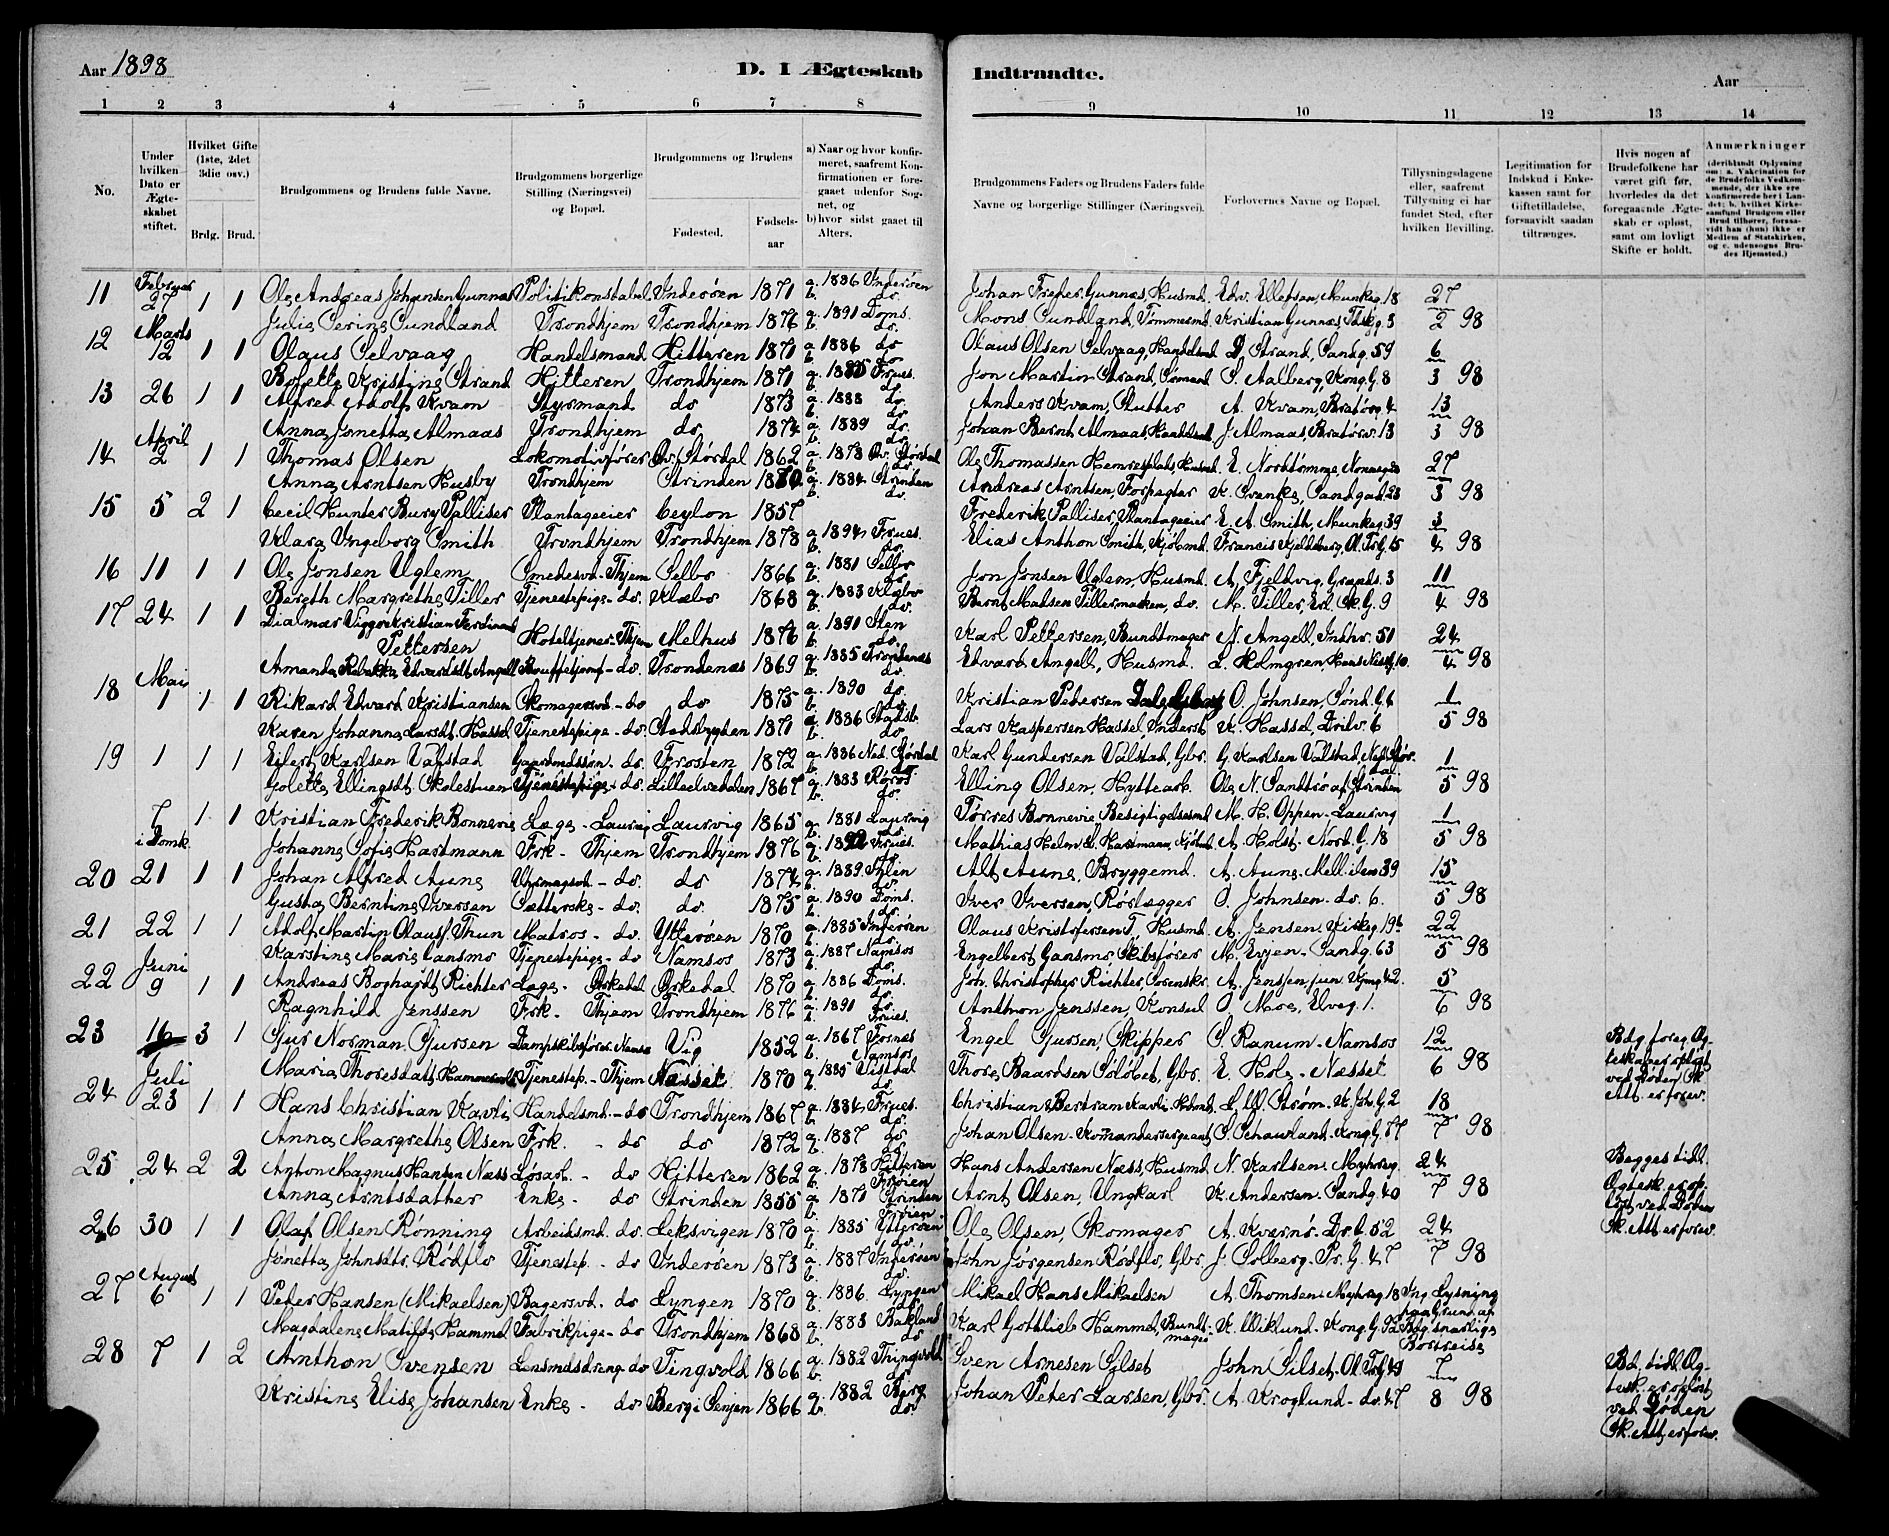 Aar 1898
D. I Ægteskab Indtraadte.
Aar
1 2 3 4 5 6 7 8 9 10 11 12 13 14
No.
Under hvilken Dato er Ægteskabet stiftet.
Hvilket Gifte (1ste, 2det 3die osv.)
Brdg. Brud.
Brudgommens og Brudens fulde Navne.
Brudgommens borgerlige Stilling (Næringsvei) og Bopæl.
Brudgommens og Brudens
Fødested. Fødsels-aar
a) Naar og hvor konfirmeret, saafremt Konfirmationen er foregaaet udenfor Sognet, og
b) hvor sidst gaaet til Alters.
Brudgommens Faders og Brudens Faders fulde Navne og borgerlige Stillinger (Næringsvei).
Forlovernes Navne og Bopæl.
Tillysningsdagene eller, saafremt Tillysning ei har fundet Sted, efter hvilken Bevilling.
Legitimation for Indskud i Enkekassen samt for Giftetilladelse, forsaavidt saadan tiltrænges.
Hvis nogen af Brudefolkene har været gift før, hvorledes da det foregaaende Ægteskab er opløst, samt om lovligt Skifte er holdt.
Anmærkninger
(deriblandt Oplysning om: a. Vakcination for de Brudefolks Vedkommende, der ikke ere konfirmerede her i Landet; b. hvilket Kirkesamfund Brudgom eller Brud tilhører, forsaavidt han (hun) ikke er Medlem af Statskirken, og c. udensogns Brudes Hjemsted.)
11 Februar 27 1 1 Ole Andreas Johansen Gunnæs Politikonstabel Inderøen 1871 a. 1886 Inderøen b. do. Johan Freder. Gunnæs, Husmd. Edv. Ellefsen, Munkeg. 18 27
Julie Serine Sundland Trondhjem Trondhjem 1876 a. 1891 Doms. b. do. Mons Sundland, Tømmermd. Kristian Gunnæs, 3 2 98
12 Marts 12 1 1 Olaus Selvaag Handelsmand Hitteren 1871 a. 1886 do b. do Olaus Olsen Selvaag, Handelsmd Strand, Sandg. 59 6
Bolette Kristine Strand Hitteren Trondhjem 1871 a. 1885 Frues. b. do. Jon Martion Strand, Sømand S. Aalberg, Kong. G. 8 3 98
13 26 1 1 Alfred Adolf Kvam Styrmand do 1873 a. 1888 do b. do. Anders Kvam, Slutter A. Kvam, Bratørg. 4 13
Anna Jonetta Almaas Trondhjem do. 1874 a. 1889 do. b. do. Johan Bernt Almaas, J. Almaas, Bratørv. 13 3 98
14 April 2 1 1 Thomas Olsen Lokomotivfører Øv. Størdal 1862 a. 1878 Øv. Størdal b. do. Ole Thomassen E. Nordtømme, 27
Anna Arntsen Husby Trondhjem Strinden 1870 a. 1884 Strinden b. do. Andreas Arntsen, Forpagter K. Svenke, Sandgad. 23 3 98
15 5 2 1 Cecil Hunter Bury Palliser Plantageeier Ceylon 1857 Frederik Palliser, Plantageeier E. A. Smith, Munkeg. 39 3
Klara Ingeborg Smith Trondhjem Trondhjem 1878 a. 1894 Frues. b. do. Elias Anthon Smith, Kjøbmd. Francis Kjeldsberg, Ol. Trf. 15 4 98
16 11 1 1 Ole Jonsen Uglem Smedesvd. Thjem Selbo 1866 a. 1881 Selbo b. do Jon Jonsen Uglem, Husmd. A. Fjeldvig, Grands. 3 11
Bereth Margrethe Tiller Tjenestepige - do. Klæbo 1868 a. 1883 Klæbo b. do. Bernt Madsen Tillermarken, do. M. Tiller, Erl. Sk. G. 9 4 98
17 24 1 1 Dialmar Viggo Kristian Ferdinand Pettersen Hoteltjener - Thjem Melhus 1876 a. 1891 Ilen b. do. Karl Pettersen, Bundtmager N. Angell, Indhr. 51 24
Amanda Rebekka Edvardsdt. Angell do. Trondenæs 1869 a. 1885 Trondenæs b. do. Edvard Angell, Husmd. L. Holmgren, 10. 4 98
18 Mai 1 1 1 Rikard Edvard Kristiansen Skomagersvd. - do do 1875 a. 1890 do. b. do. Kristian Pedersen O. Johnsen, Sønd. G. 6 1
Karen Johanna Larsdt. Hassel Tjenestepige - do. Stadsbygden 1871 a. 1886 Stadsb. b. do. Lars Kaspersen Hassel, Inderst K. Hassel, Ihlev. 6 5 98
19 1 1 1 Eilert Karlsen Valstad Gaardmdssøn. do. Frosten 1872 a. 1886 Ned. Størdal b. do. Karl Gundersen Valstad, Gbr. G. Karlsen Valstad, Ned. Størdal 1
Golette Ellingsdt. Skolestuen Tjenestepige - do. Lilleelvedalen 1867 a. 1883 Røros b. do. Elling Olsen, Hyttearb. Ole N. Sandrø af Strinden 5 98
7 i Domk. 1 1 Kristian Frederik Bonnevie Læge - Laurvig Laurvig 1865 a. 1881 Laurvig b. do. Tørres Bonnevie, Besigtigelsesmd M. H. Oppen - Laurvig 1
Johanne Sofie Hartmann Frk. - Thjem Trondhjem 1876 a. 1892 Frues. b. do. Mathias Helm L. Hartmann, Kjøbmd A. Holst - Nord. G. 18 5 98
20 21 1 1 Johan Alfred Aune Uhrmagsvd. - do. do 1874 a. 1889 Ihlen b. do. Alt Aune, Bryggemd. A. Aune, Mell. ilen 39 15
Gusta Berntine Iversen Sætterske - do. do. 1875 a. 1890 Doms. b. do. Iver Iversen, Rørlægger O. Johnsen - do. 6. 5 98
21 22 1 1 Adolf Martin Olausf. Thun Matros - do. Ytterøen 1870 a. 1885 Inderøen b. do. Olaus Kristofersen T., Husmd. A. Jensen, Kirkeg. 19b 22
Karstine Marie Gansmo Tjenestepige - do Namsos 1873 a. 1887 Namsos b. do. Engelbert Gansmo, Skibsfører M. Evjen - Sandg. 63 5 98
22 Juni 9 1 1 Andreas Boghardt Richter Læge - Ørkedal Ørkedal 1870 a. 1886 Doms. b. do. Joh. Christopher Richter, Sorenskr. A. Jenssen, jun. Kjmg. 42. 5
Ragnhild Jenssen Frk. - Thjem Trondhjem 1876 a. 1891 do. b. Frues. Anthon Jenssen, Konsul O. Moe, Elveg. 1. 6 98
23 16 3 1 Sjur Norman Sjursen Dampskibsfører. Namsos Vig 1852 a. 1867 Fosnæs b. Namsos Engel Sjursen, Skipper S. Ranum - Namsos 12 Bdg. foreg. Ægteskaber opløst ved Døden Sk. Att. er forev.
Marie Thoresdatt. Tjenestep. - Thjem Næsset 1870 a. 1885 Vistdal b. do. Thore Baardsen Gbr. E. Hole - Næsset 6 98
24 Juli 23 1 1 Hans Christian Kavli Handelsmd. - do Trondhjem 1867 a. 1884 Frues. b. do. Christian Bertram Kavli, L. W. Strøm - K. Joh. G. 2 18
Anna Margrethe Olsen Frk. - do do 1872 a. 1887 do b. do Johan Olsen - Komandersergeant S. Schauland - Kong. G. 57 7 98
25 24 2 2 Anton Magnus Hansen Næss Løsarb. - do Hitteren 1862 a. 1878 Hitteren b. Frøien Hans Andersen Næss, Husmd. N. Karlsen - Myhreg. 24 Begges tidl. Ægtesk. er opløst ved Døden Sk. Att. er forev.
Anna Arntsdatter Enke - do Strinden 1855 a. 1871 Strinden b. Frøien Arnt Olsen, Ungkarl K. Andersen - Sandg. 40 7 98
26 30 1 1 Olaf Olsen Rønning Arbeidsmd. do. Leksvigen 1870 a. 1885 Ytterøen b. do. Ole Olsen, Skomager A. Kvernø - Dr. G. 52 24
Jonetta Johnsdtr. Rødflo Tjenestep. - do Inderøen 1873 a. 1887 Inderøen b. do. John Jørgensen Rødflo, Gbr. J. Solberg - Pr. G. 47 7 98
27 August 6 1 1 Peder Hansen (Mikaelsen) Bagersvd. - do Lyngen 1870 a. 1886 Lyngen b. do Mikael Hans Mikaelsen A. Thomsen - Myhreg. 18 Ing. Lysning paa Grund af Bdg. snarlige Bortreise
Magdalene Matilde Hammel Fabrikpige - do Trondhjem 1868 a. 1883 Bakland b. do Karl Gottlieb Hammel, Bundtmager K. Wiklund - Kong. G. 92
28 7 1 2 Anthon Svensen Lensmdsdreng - do Tingvold 1866 a. 1882 Thingvold b. do Sven Arnesen Silset John Silset - Ol. Trf. 49 7 Bd. tidl. Ægtesk. er opløst ved Døden Sk. Att. er forev.
Kristine Elise Johansen Enke - do Berg i Senjen 1866 a. 1882 Berg b. do. Johan Peter Larsen, Gbr. A. Kroglund - do. 47 8 98